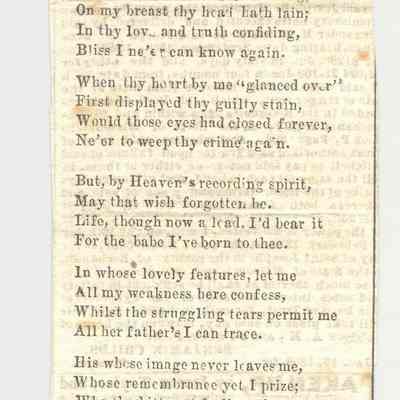 On my breast thy head hath lain;
In thy lov.. and truth confiding,
Bliss I ne'er can know again.
When thy heart by me "glanced over"
First displayed thy guilty stain,
Would those eyes had closed forever,
Ne'er to weep thy crime again.
But, by Heaven's recording spirit,
May that wish forgotten be.
Life, though now a lead, I'd bear it
For the babe I've born to thee.
In whose lovely features, let me
All my weakness here confess,
Whilst the struggling tears permit me
All her father's I can trace.
His whose image never leaves me,
Whose remembrance yet I prize;